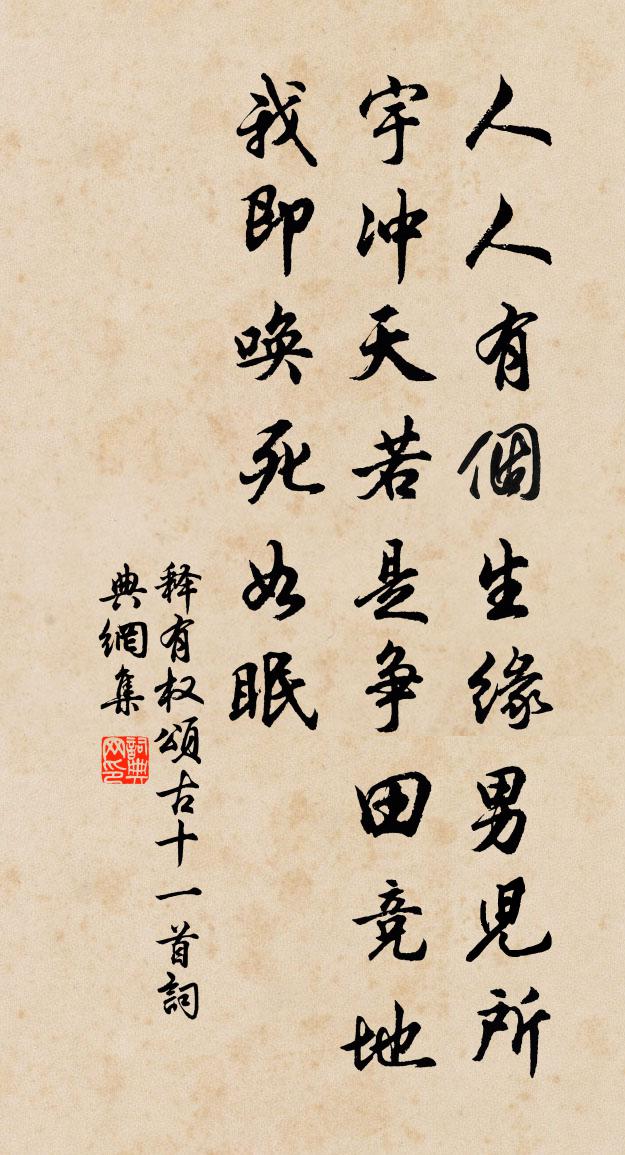 人人有個生緣男児所
宇冲天若是争田竞地
我即唤死如眠
释有权頌古十一首詞
典網集
詞典
网印